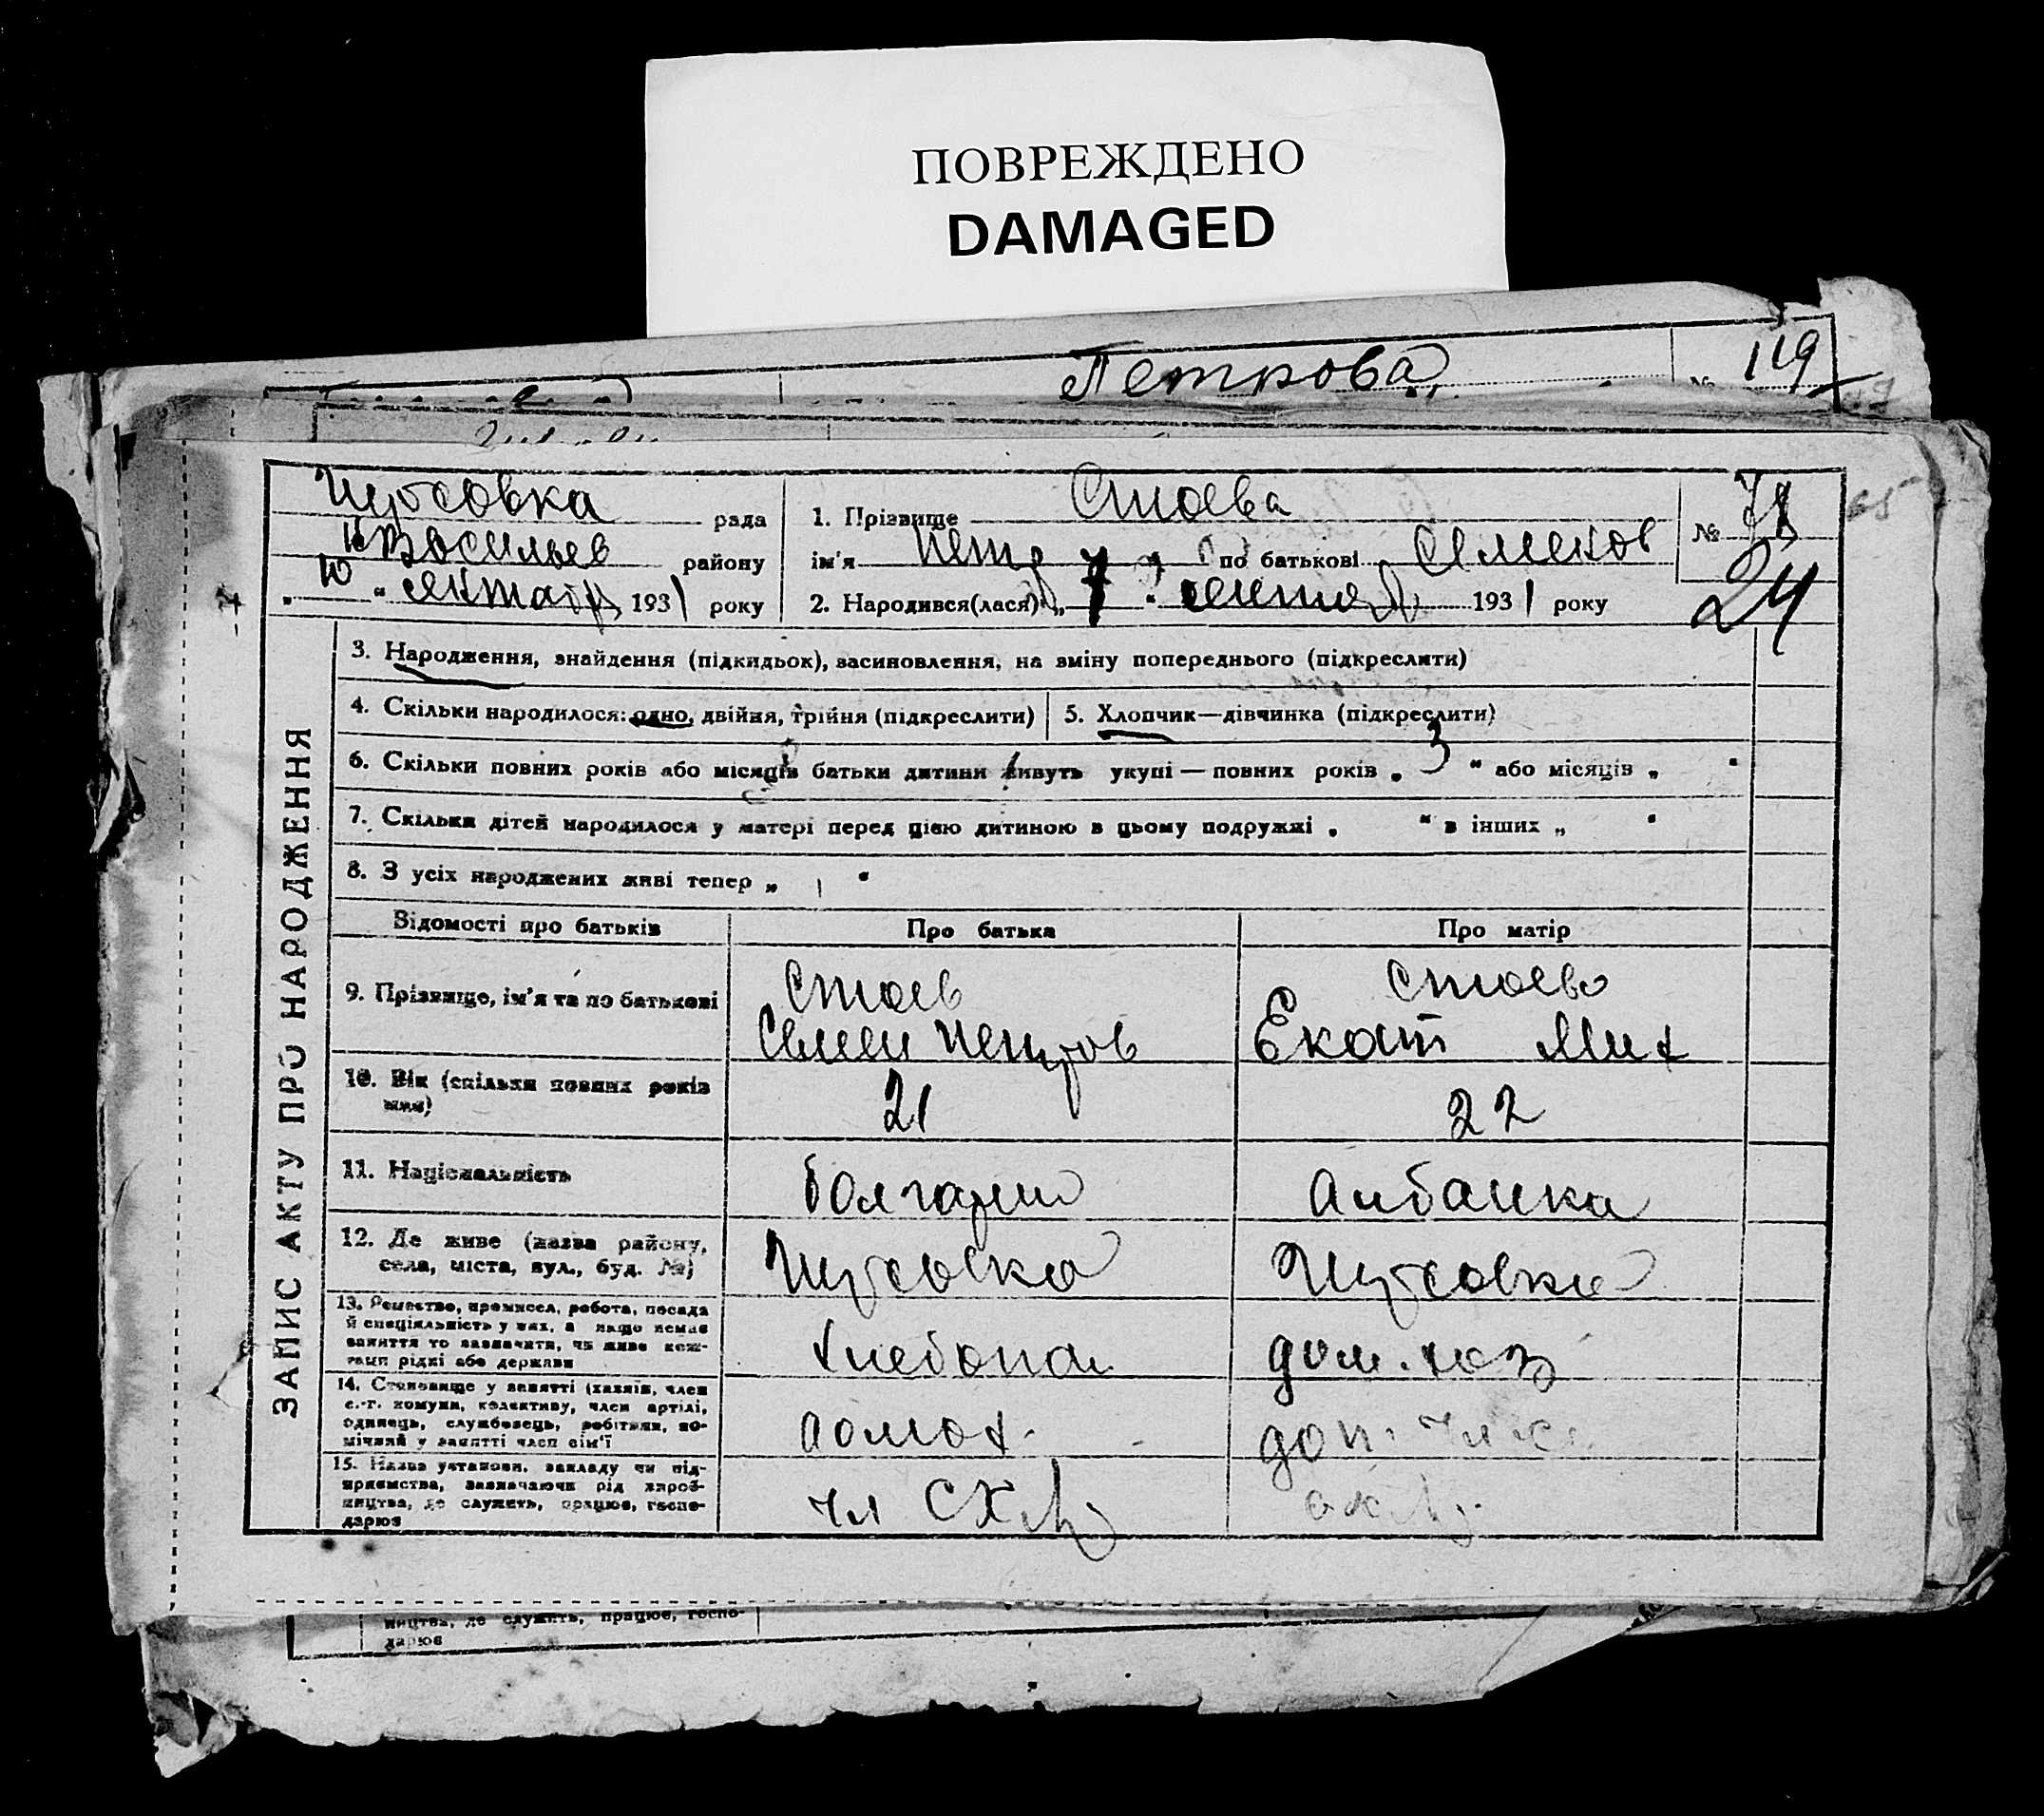 ПОВРЕЖДЕНО
DAMAGED
Петрова № 119
рада
району
10 " 1931 року
1. Прізвище Стоева
ім'я Петр по батькові Семенов
2. Народився(лася) „ 7 " 1931 року
№ 78
24
ЗАПИС АКТУ ПРО НАРОДЖЕННЯ
3. Народження, знайдення (підкидьок), засиновлення, на зміну попереднього (підкреслити)
4. Скільки народилося: одно, двійня, трійня (підкреслити)
5. Хлопчик—дівчинка (підкреслити)
6. Скільки повних років або місяців батьки дитини живуть укупі — повних років „ 3 " або місяців „ "
7. Скільки дітей народилося у матері перед цією дитиною в цьому подружжі „ " в інших „ "
8. З усіх народжених живі тепер „ "
Відомості про батьків Про батька Про матір
9. Прізвище, ім'я та по батькові
Стоев
Семен Петров
Стоева
Екат Мих
10. Вік (скільки повних років
мин) 21 22
11. Національність болгарин Албанка
12. Де живе (назва району,
села, міста, вул., буд. №)
13. Ремество, промисел, робота, посада
й спеціяльність у них, а якщо немає
заняття то зазначити, чи живе кош-
тами рідні або держави
хлебопаш дом. хоз
14. Становище у занятті (хазяїн, член
с.-г. комуни, колективу, член артілі,
одинець, службовець, робітник, по-
мічний у занятті член сім'ї
доп.
15. Назва установи, закладу чи під-
приємства, зазначаючи рід вироб-
ництва, де служить, працює, госпо-
дарює
чл СХ
ництва, де служить, працює, госпо-
дарює